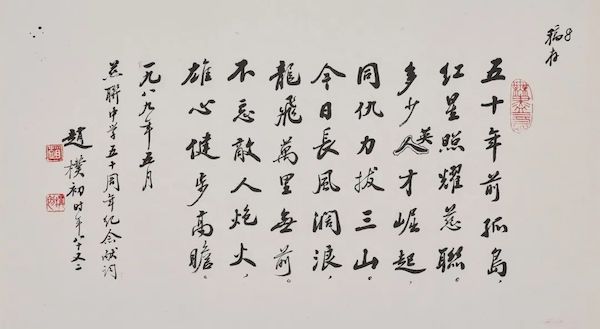 8
稿存
五十年前孤島，
红星照耀慈聯。
多少英才崛起，
同仇力拔三山。
今日長風濶浪，
龍飛萬里無前。
不忘敵人炮火，
雄心健步高瞻。
一九八九年五月
慈聯中学五十周年纪念献词
趙樸初时年八十又二